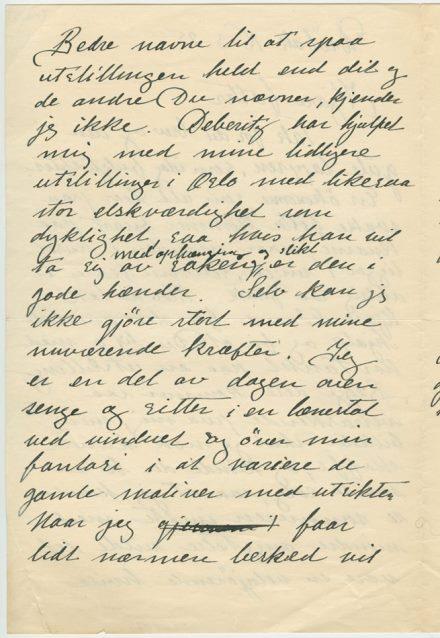 Bedre navne til at spaa
utstillingen held end dit og
de andre Du nævner, kjender
jeg ikke. Deberitz har hjulpet
mig med mine tidligere
utstillinger i Oslo med likesaa
stor elskværdighet som
dyktighet, saa hvis han vil
med ophængning og slikt
ta sig av saken, er den i
gode hænder. Selv kan jeg
ikke gjöre stort med mine
nuværende kræfter. Jeg
er en del av dagen oven
senge og sitter i en lænestol
ved vinduet og över min
fantasi i at variere de
gamle motiver med utsikten
Naar jeg faar
lidt nærmere besked vil